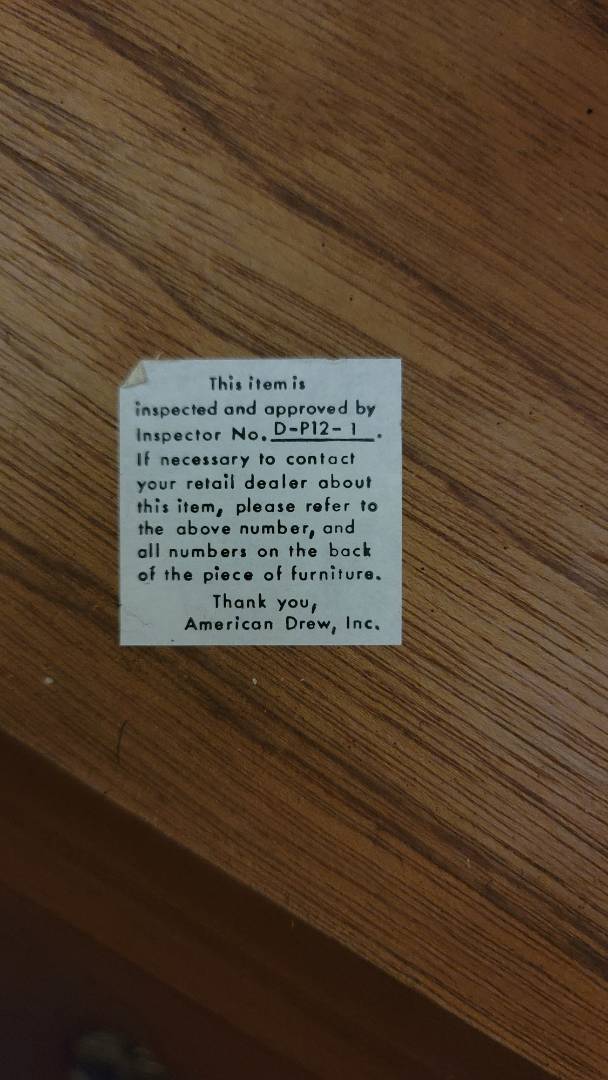 This item is
inspected and approved by
Inspector No. D-P12-1.
If necessary to contact
your retail dealer about
this item, please refer to
the above number, and
all numbers on the back
of the piece of furniture.
Thank you,
American Drew, Inc.